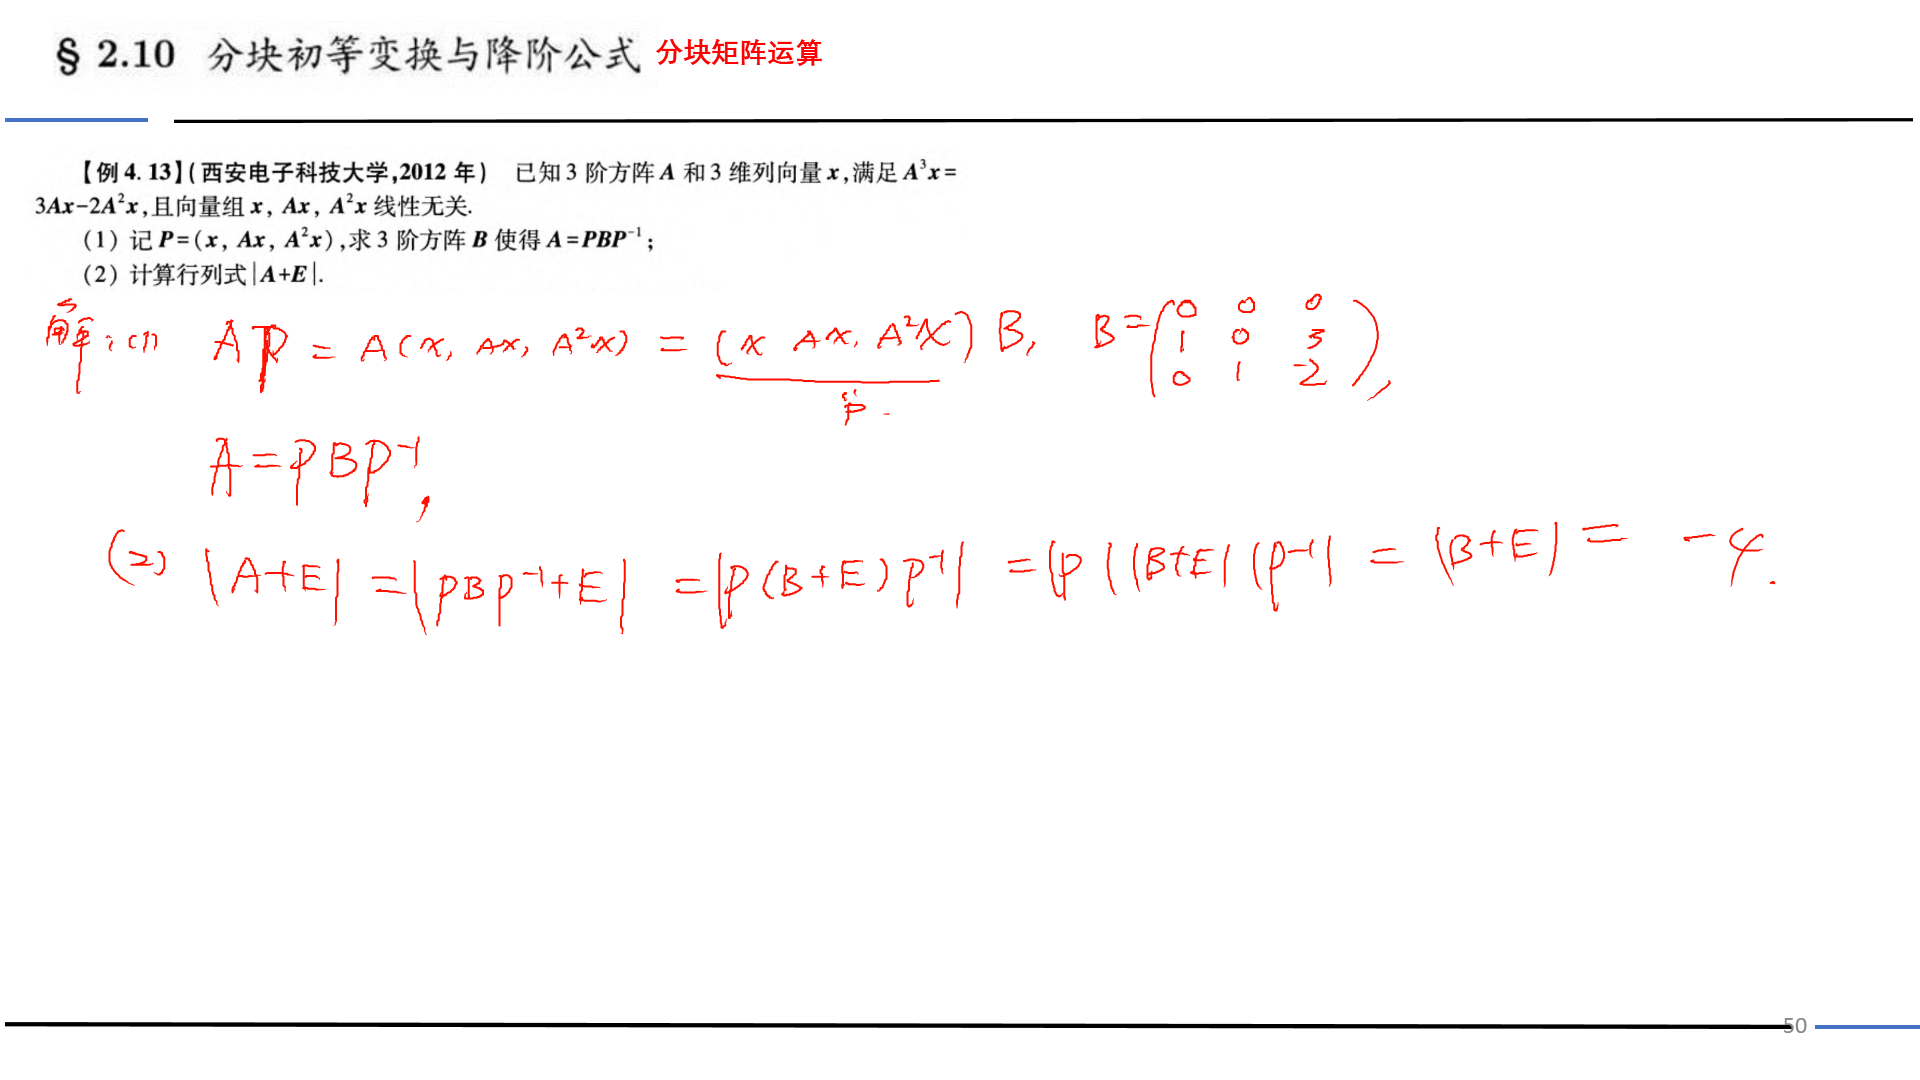 § 2.10 分块初等变换与降阶公式 分块矩阵运算
【例 4.13】(西安电子科技大学,2012 年) 已知 3 阶方阵 A 和 3 维列向量 x,满足 A³x=
3Ax-2A²x,且向量组 x, Ax, A²x 线性无关.
(1) 记 P=(x, Ax, A²x),求 3 阶方阵 B 使得 A=PBP⁻¹;
(2) 计算行列式|A+E|.
解: (1) AP = A(x, Ax, A²x) = (x Ax, A²x) B, B = (0 0 0
1 0 3
0 1 -2),
"P.
A = PBP⁻¹,
(2) |A+E| = |PBP⁻¹+E| = |P(B+E)P⁻¹| = |P||B+E||P⁻¹| = |B+E| = -4.
50